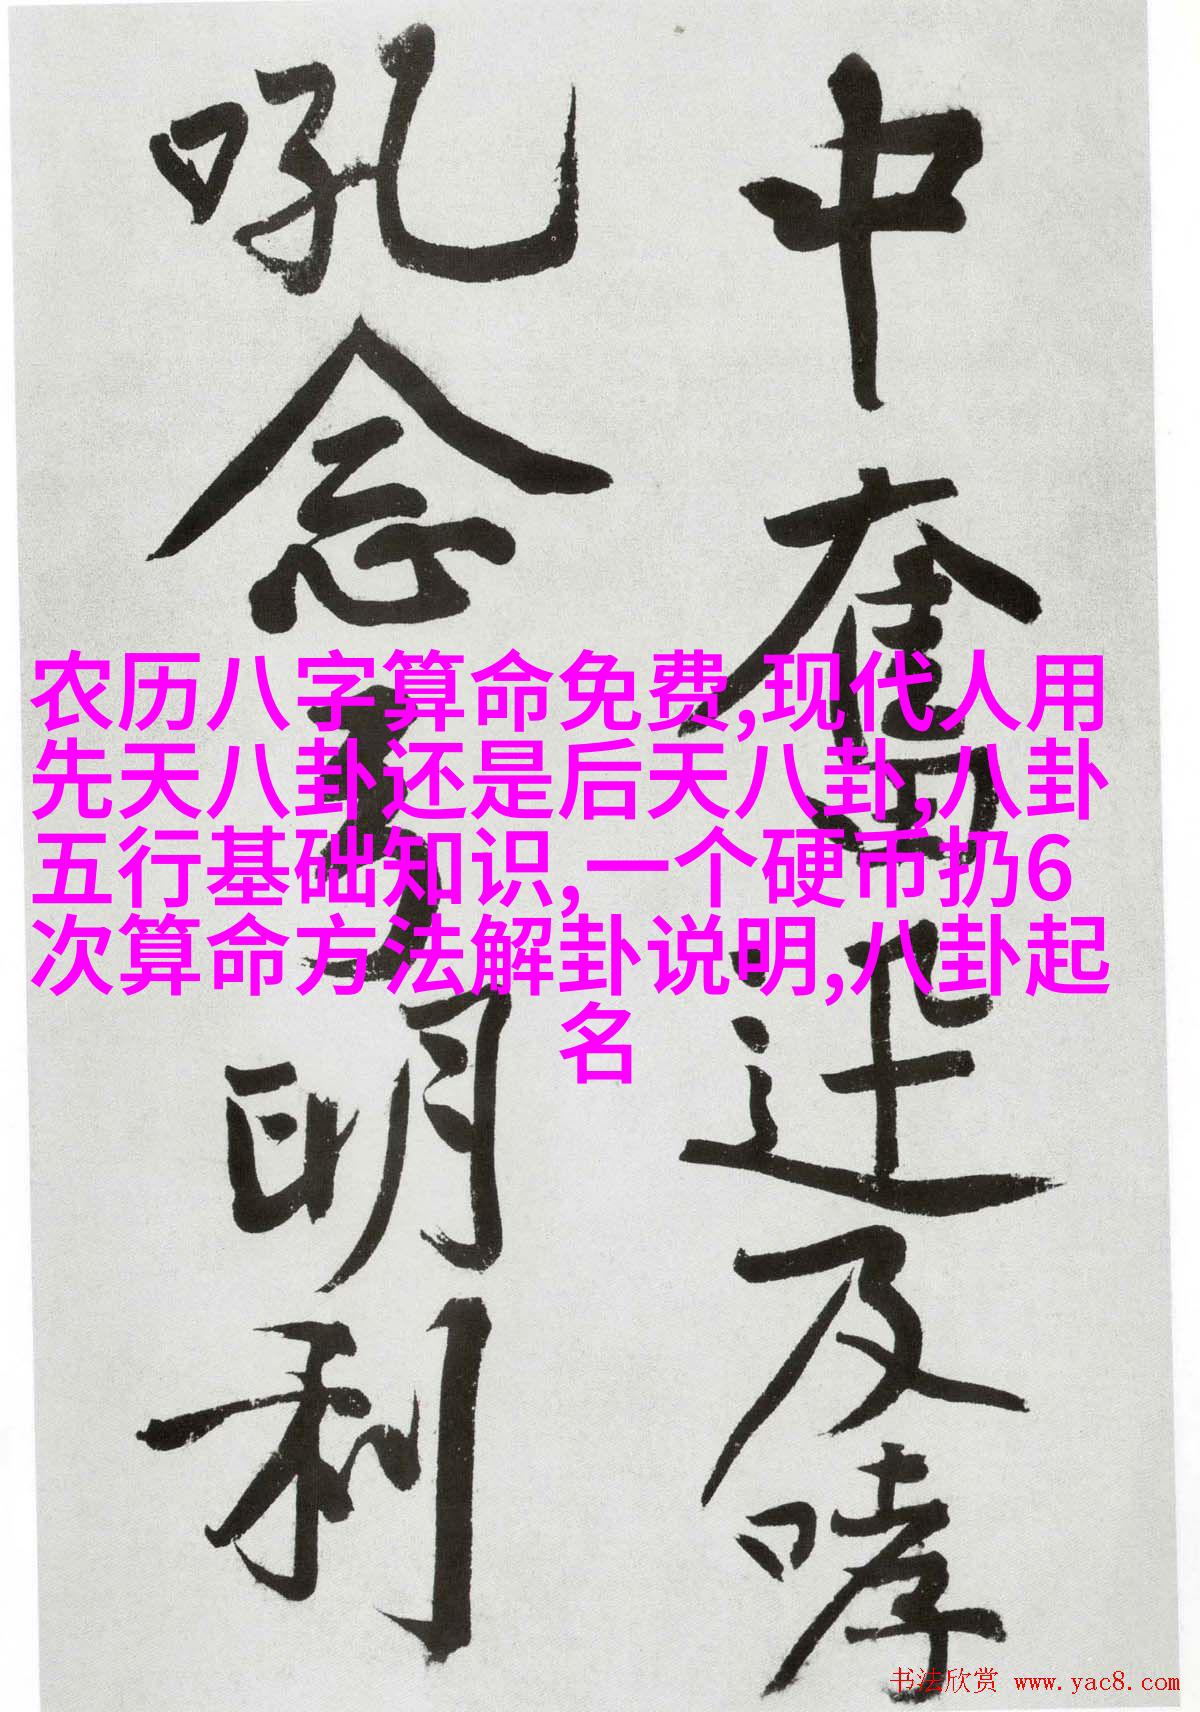 中奮迅及哮
吼念明利
农历八字算命免费,现代人用
先天八卦还是后天八卦,八卦
五行基础知识,一个硬币扔6
次算命方法解卦说明,八卦起
名
书法欣赏 www.yac8.com